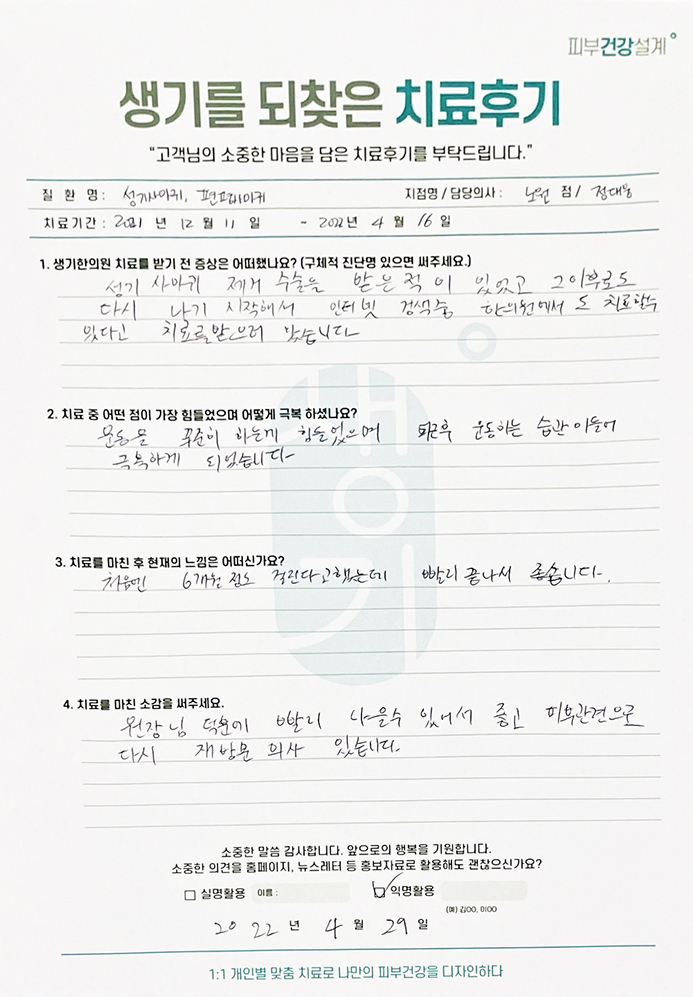 피부건강설계
생기를 되찾은 치료후기
"고객님의 소중한 마음을 담은 치료후기를 부탁드립니다."
질 환 명 : 성기사마귀, 편평사마귀 지점명 / 담당의사 : 노원 점 / 정대웅
치료기간 : 2021 년 12 월 11 일 ~ 2022 년 4 월 16 일
1. 생기한의원 치료를 받기 전 증상은 어떠했나요? (구체적 진단명 있으면 써주세요.)
성기 사마귀 제거 수술을 받은적이 있었고 그이후로도
다시 나기 시작해서 인터넷 검색중 한의원에서도 치료할수
있다고 치료를받으러 왔습니다
2. 치료 중 어떤 점이 가장 힘들었으며 어떻게 극복 하셨나요?
운동을 꾸준히 하는게 힘들었으며 퇴근후 운동하는 습관이들어
극복하게 되었습니다
3. 치료를 마친 후 현재의 느낌은 어떠신가요?
처음엔 6개월 정도 걸린다고했는데 빨리끝나서 좋습니다.
4. 치료를 마친 소감을 써주세요.
원장님 덕분에 빨리 나을수 있어서 좋고 피부관련으로
다시 재방문 의사 있습니다.
생기
소중한 말씀 감사합니다. 앞으로의 행복을 기원합니다.
소중한 의견을 홈페이지, 뉴스레터 등 홍보자료로 활용해도 괜찮으신가요?
실명활용 이름 : 익명활용
(예) 김OO, 이OO
2022 년 4 월 29 일
1:1 개인별 맞춤 치료로 나만의 피부건강을 디자인하다